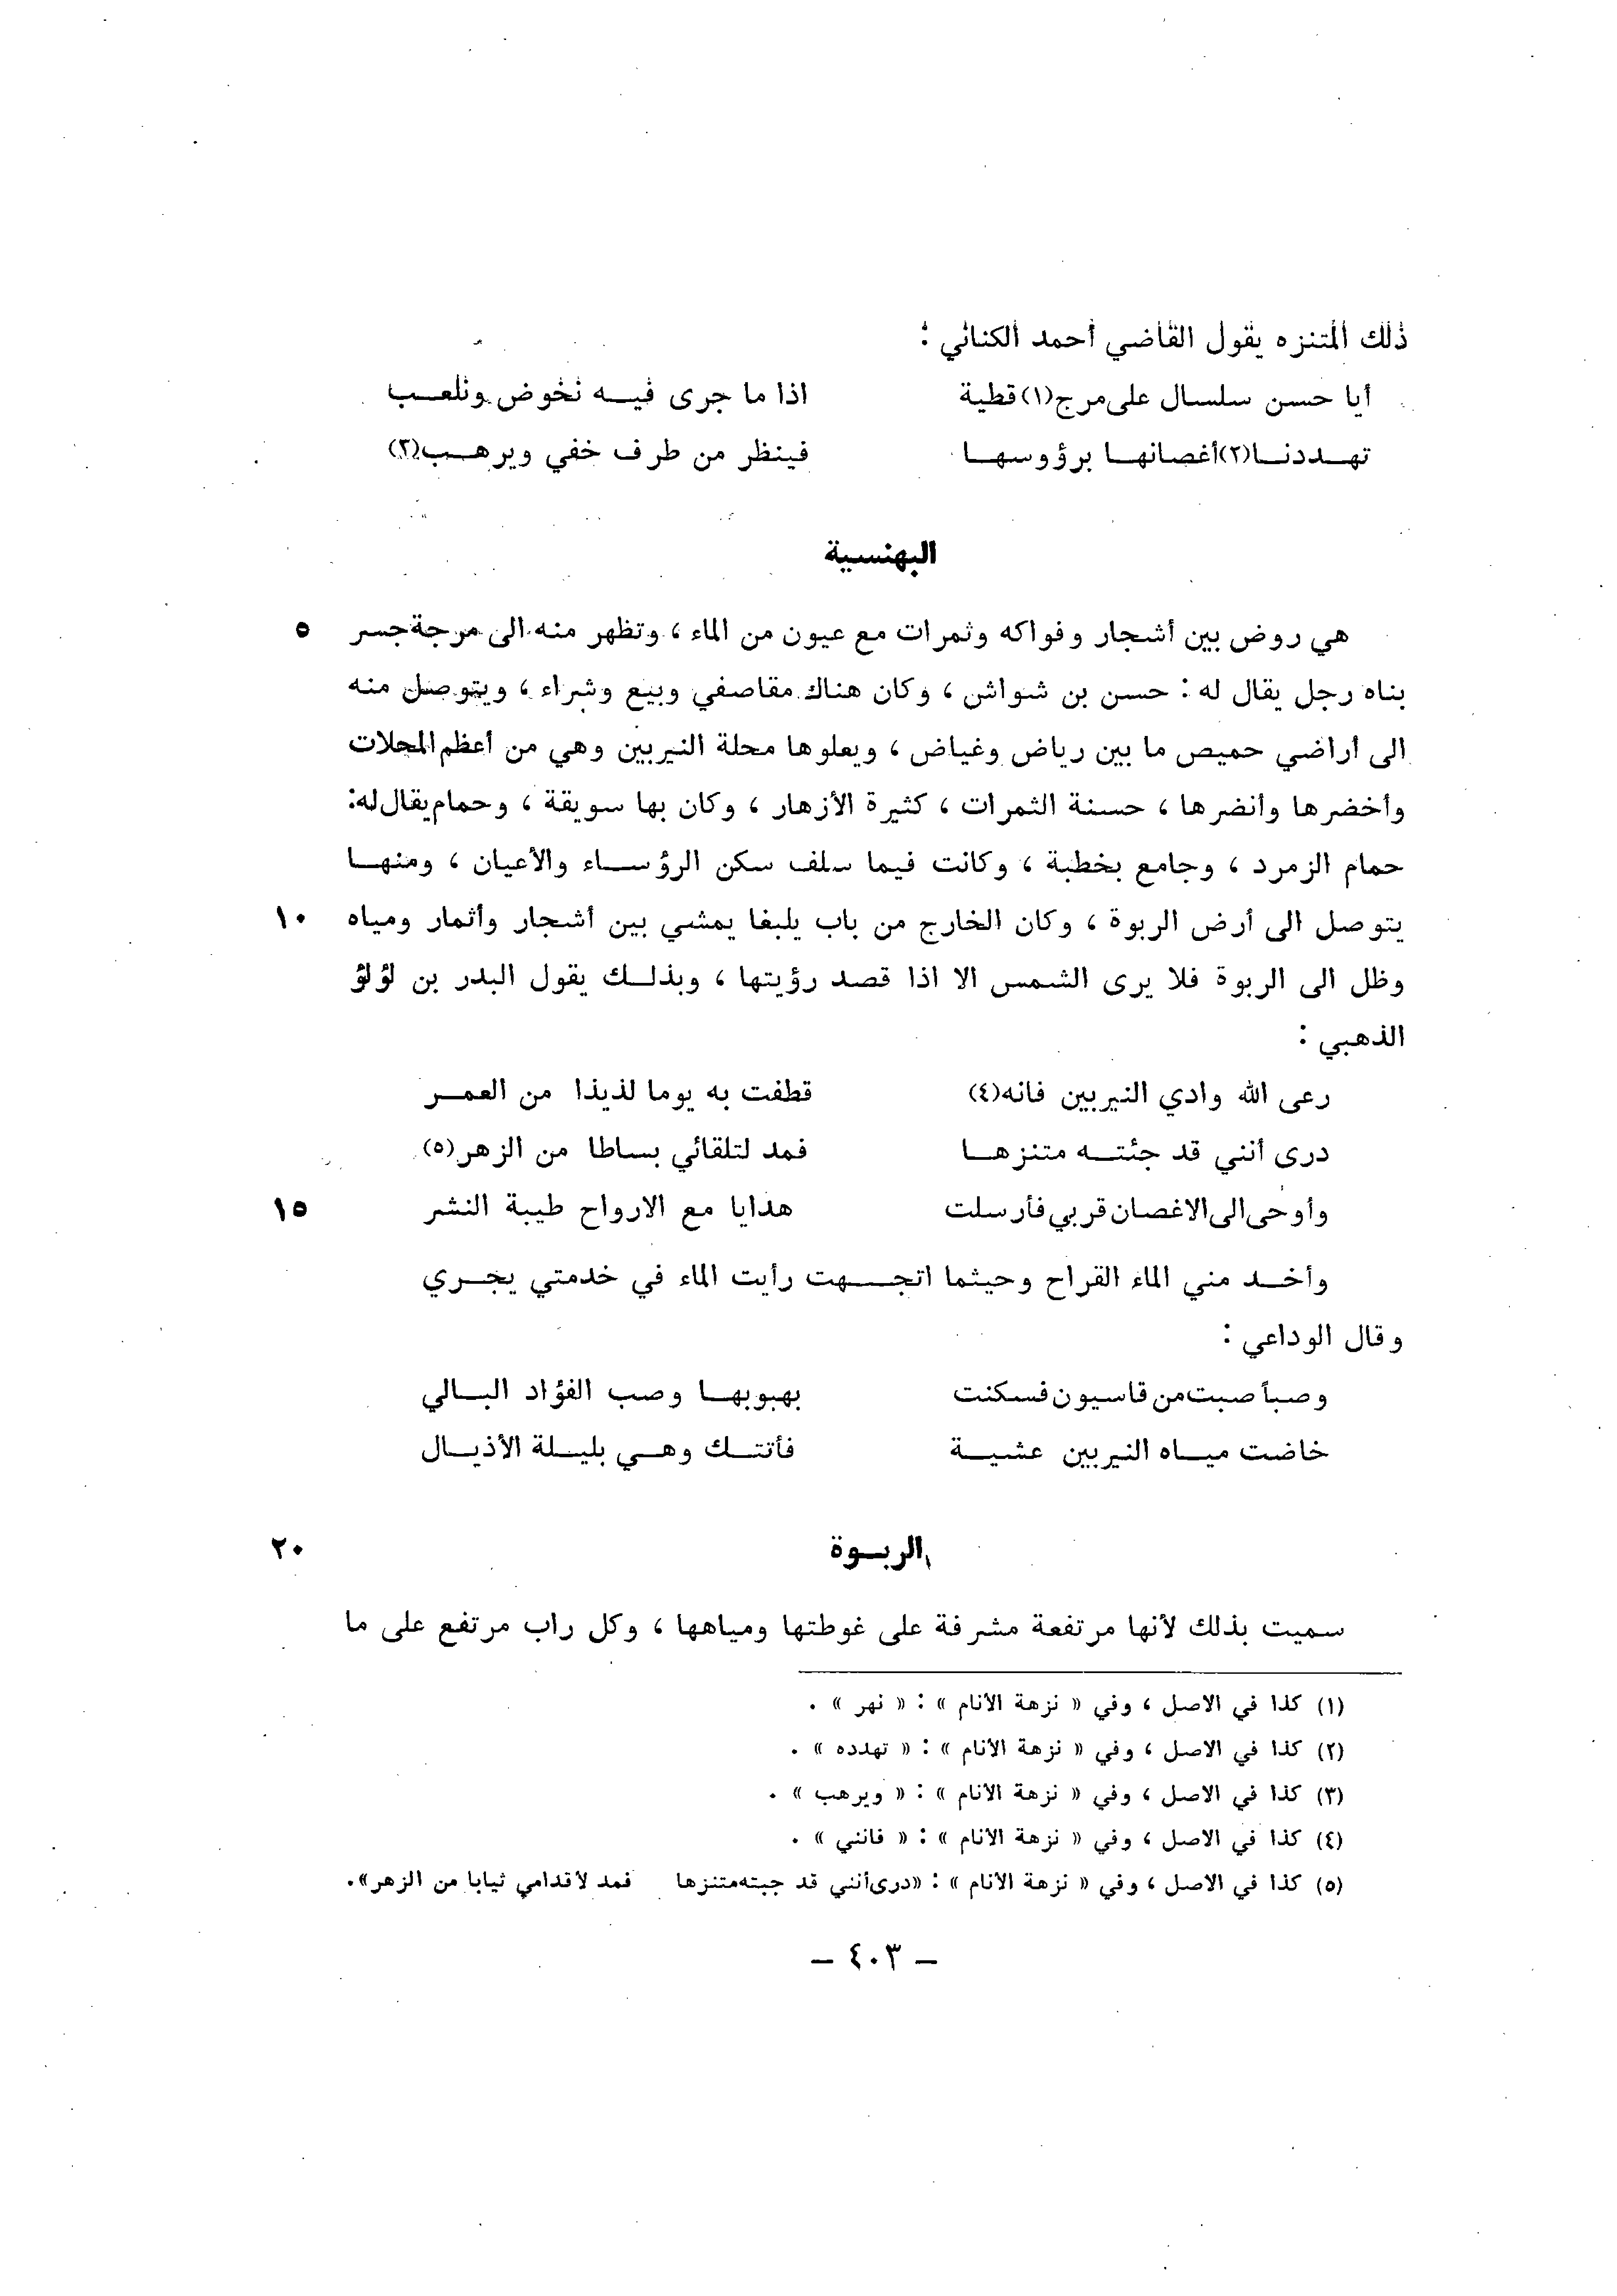 ذلك المتنزه يقول القاضي أحمد الكناني :
أيا حسن سلسال على مرج(١) قطية اذا ما جرى فيــه نخوض ونلعــب
تهــددنــا(٢) أغصانهــا برؤوسهــا فينظر من طرف خفي ويرهــب(٣)
البهنسية
هي روض بين أشجار وفواكه وثمرات مع عيون من الماء ، وتظهر منه الى مرجة جسر ٥
بناه رجل يقال له : حسن بن شواش ، وكان هناك مقاصفي وبيع وشراء ، ويتوصل منه
الى أراضي حميص ما بين رياض وغياض ، ويعلوها محلة النيربين وهي من أعظم المحلات
وأخضرها وأنضرها ، حسنة الثمرات ، كثيرة الأزهار ، وكان بها سويقة ، وحمام يقال له:
حمام الزمرد ، وجامع بخطبة ، وكانت فيما سلف سكن الرؤســاء والأعيان ، ومنهــا
يتوصل الى أرض الربوة ، وكان الخارج من باب يلبغا يمشي بين أشجار وأثمار ومياه ١٠
وظل الى الربوة فلا يرى الشمس الا اذا قصد رؤيتها ، وبذلــك يقول البدر بن لؤلؤ
الذهبي :
رعى الله وادي النيربين فانه(٤) قطفت به يوما لذيذا من العمــر
درى أنني قد جئتــه متنزهــا فمد لتلقائي بساطا من الزهر(٥)
وأوحى الى الاغصان قربي فأرسلت هدايا مع الارواح طيبة النشر ١٥
وأخــد مني الماء القراح وحيثما اتجــهت رأيت الماء في خدمتي يجــري
وقال الوداعي :
وصبأ صبت من قاسيون فسكنت بهبوبهــا وصب الفؤاد البــالي
خاضت ميــاه النيربين عشيــة فأتتــك وهــي بليــلة الأذيــال
الربــوة ٢٠
سميت بذلك لأنها مرتفعة مشرفة على غوطتها ومياهها ، وكل راب مرتفع على ما
(١) كذا في الاصل ، وفي « نزهة الأنام » : « نهر » .
(٢) كذا في الاصل ، وفي « نزهة الأنام » : « تهدده » .
(٣) كذا في الاصل ، وفي « نزهة الأنام » : « ويرهب » .
(٤) كذا في الاصل ، وفي « نزهة الأنام » : « فانني » .
(٥) كذا في الاصل ، وفي « نزهة الأنام » : «درى أنني قد جبته متنزها فمد لأقدامي ثيابا من الزهر».
– ٤٠٣ –